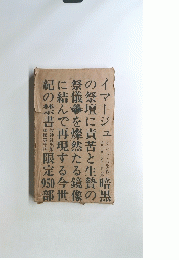 イマージュ
暗黒
の祭壇に責苦と生贄の
祭儀を燦然たる鏡像
に結んで再現する今世
紀の禁書
限定950部